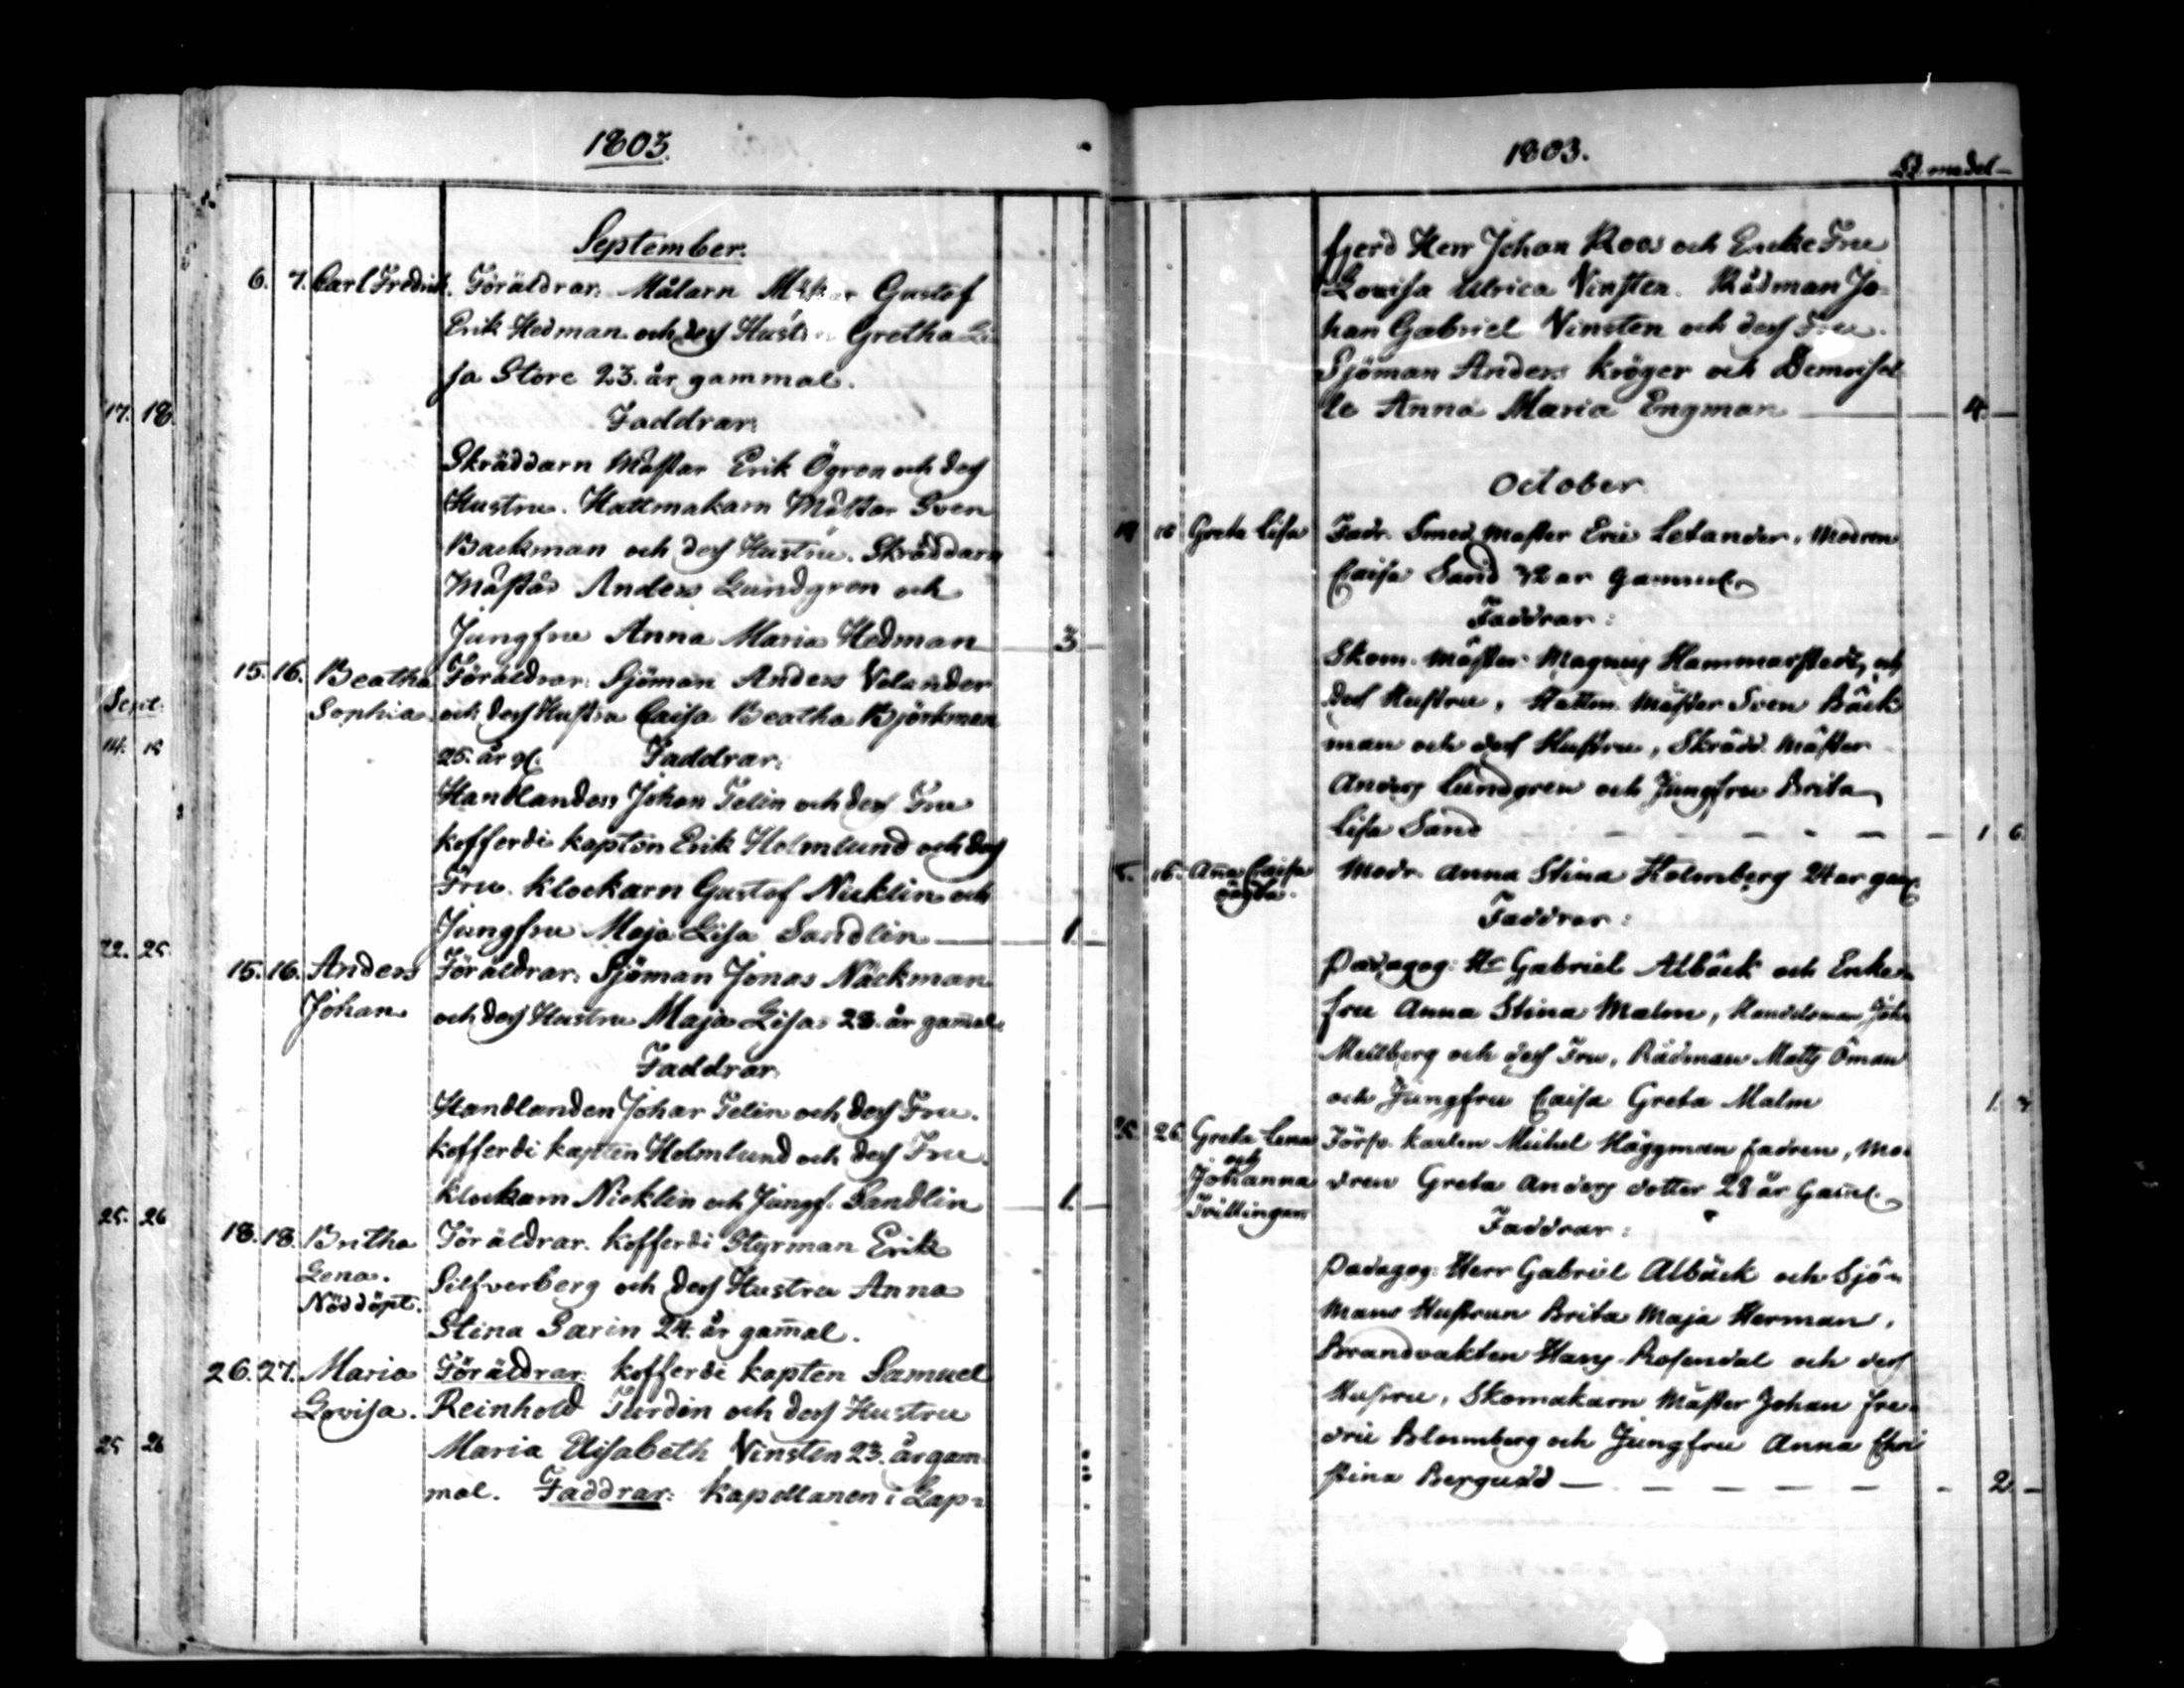 1803.
September.
6. 7. Carl Fredrik. Föräldrar: Målarn Gustaf
Erik Hedman och dess Gretha Li
sa Store 23. år gammal.
Faddrar:
Skräddarn Mästar Erik Ögren och dess
Hustru. Hattmakarn Mästar Sven
Backman och dess Hustru. Skräddarn
Mästar Anders Lundgren och
Jungfru Anna Maria Hedman 3
15. 16. Beatha Föräldrar: Sjöman Anders Velander
Sophia. och dess Hustru Caisa Beatha Björkman
25. år gl. Faddrar:
Handlanden Johan Telin och dess Fru
kofferdi kapten Erik Holmlund och dess
Fru. Klockarn Gustaf Nicklin och
Jungfru Maja Lisa Sandlin 1.
15. 16. Anders Föräldrar: Sjöman Jonas Näckman
Johan och dess Hustru Maja Lisa 28. år gam̄al.
Faddrar
Handlanden Johan Telin och dess Fru.
kofferdi kapten Holmlund och dess Fru.
Klockarn Nicklin och Jungf. Sandlin 1.
18. 18. Britha Föräldrar. kofferdi Styrman Erik
Lena. Silfverberg och dess Hustru Anna
Nöddöpt. Stina Sarin 24. år gam̄al.
26. 27. Maria Föräldrar: kofferdi kapten Samuel
Lovisa. Reinhold Turdin och dess Hustru
Maria Elisabeth Vinsten 23. år gam
mal. Faddrar: Kapellanen i Lap=
17. 18.
Sept:
14. 15
22. 25.
25. 26
25 26
1803.
fjerd Herr Johan Roos och Encke Fru
Lovisa Ulrica Vinsten. Rådman Jo=
han Gabriel Vinsten och dess Fru.
Sjöman Anders Kröger och Demoisel
le Anna Maria Engman 4.
October
18 Greta Lisa Fadr. Smed Mäster Eric Letander, Modren
Caisa Sand 32 år gammal
Faddrar:
Skom. Mäster Magnus Hammarstedt, och
dess Hustru, Hattm. Mäster Sven Bäck
man och dess Hustru, Skrädd. Mäster
Anders Lundgren och Jungfru Brita
Lisa Sand 1 6.
16. An̄a Caisa Modr. Anna Stina Holmberg 24 år gam̄l.
oägta.
Faddrar:
Pædagog: Hr Gabriel Albäck och Enke=
fru Anna Stina Malm, Handelsman Joh.
Mellberg och dess Fru, Rådman Matts Öman
och Jungfru Caisa Greta Malm 1.
26. Greta Lena Förs. karlen Michel Häggman fadren, Mo=
och
Johanna dren Greta Anders dotter 28 år Gam̄l.
Trillingar
Faddrar:
Pædagog: Herr Gabriel Albäck och Sjö=
mans Hustrun Brita Maja Herman,
Brandvakten Hans Rosendal och dess
Hustru, Skomakarn Mäster Johan Fre=
dric Blomberg och Jungfru Anna Chri
stina Bergudd 2